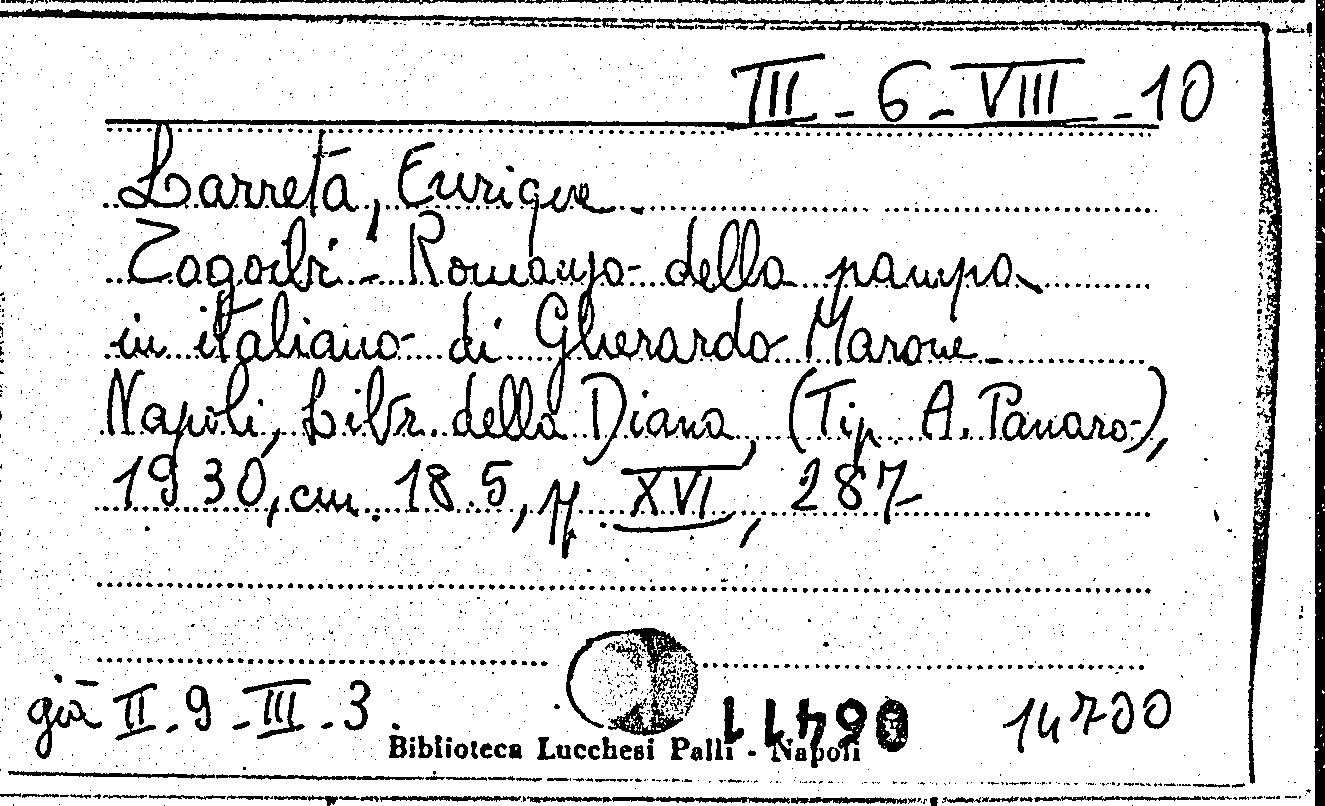 III - 6 - VIII - 10
Larreta, Enrique.
Zogoibi - Romanzo della pampa
in italiano di Gherardo Marone -
Napoli, Libr. della Diana, (Tip. A. Panaro),
1930, cm. 18.5, pp. XVI, 287
già II - 9 - III - 3.
14700
Biblioteca Lucchesi Palli - Napoli